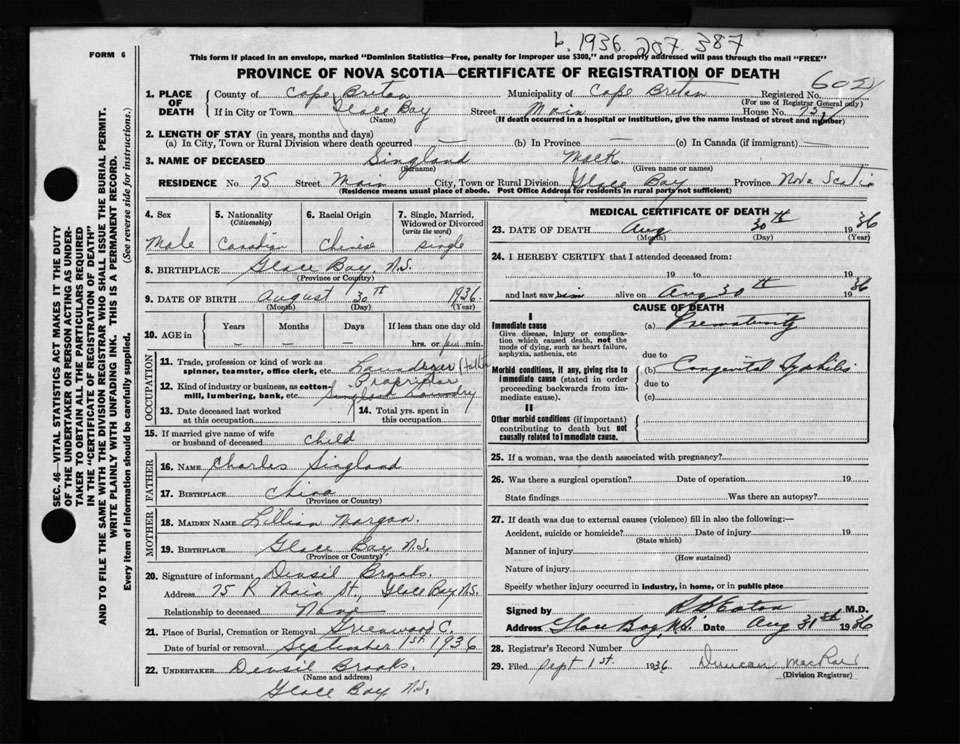 b. 1936. 207. 387
FORM 6
This form if placed in an envelope, marked "Dominion Statistics—Free, penalty for improper use $300," and properly addressed will pass through the mail "FREE"
PROVINCE OF NOVA SCOTIA—CERTIFICATE OF REGISTRATION OF DEATH
1. PLACE OF DEATH County of Cape Breton Municipality of Cape Breton Registered No.
(For use of Registrar General only)
If in City or Town Glace Bay Street Main House No. 75
(Name) (If death occurred in a hospital or institution, give the name instead of street and number)
2. LENGTH OF STAY (in years, months and days)
(a) In City, Town or Rural Division where death occurred — (b) In Province — (c) In Canada (if immigrant) —
3. NAME OF DECEASED Singland Mack
(Surname) (Given name or names)
RESIDENCE No. 75 Street Main City, Town or Rural Division Glace Bay Province Nova Scotia
(Residence means usual place of abode. Post Office Address for residents in rural parts not sufficient)
4. Sex Male
5. Nationality (Citizenship) Canadian
6. Racial Origin Chinese
7. Single, Married, Widowed or Divorced (write the word) Single
8. BIRTHPLACE Glace Bay, N.S.
(Province or Country)
9. DATE OF BIRTH August 30th 1936
(Month) (Day) (Year)
10. AGE in Years — Months — Days — If less than one day old hrs. or min.
OCCUPATION
11. Trade, profession or kind of work as spinner, teamster, office clerk, etc. Launderer (Father
12. Kind of industry or business, as cotton-mill, lumbering, bank, etc. Proprietor
Laundry
13. Date deceased last worked at this occupation
14. Total yrs. spent in this occupation
15. If married give name of wife or husband of deceased Child
FATHER
16. NAME Charles Singland
17. BIRTHPLACE China
(Province or Country)
MOTHER
18. MAIDEN NAME Lillian Morgan
19. BIRTHPLACE Glace Bay, N.S.
(Province or Country)
20. Signature of informant Densil Brooks.
Address 75 Main St., Glace Bay N.S.
Relationship to deceased None
21. Place of Burial, Cremation or Removal Greenwood C.
Date of burial or removal September 1st 1936
22. UNDERTAKER Densil Brooks.
(Name and address)
Glace Bay N.S.
MEDICAL CERTIFICATE OF DEATH
23. DATE OF DEATH Aug 30th 1936
(Month) (Day) (Year)
24. I HEREBY CERTIFY that I attended deceased from:
19 to 19
and last saw him alive on Aug 30th 1936
CAUSE OF DEATH
I
Immediate cause
Give disease, injury or complication which caused death, not the mode of dying, such as heart failure, asphyxia, asthenia, etc
(a) Prematurity
due to
Morbid conditions, if any, giving rise to immediate cause (stated in order proceeding backwards from immediate cause).
(b) Congenital Syphilis
due to
(c)
II
Other morbid conditions (if important) contributing to death but not causally related to immediate cause.
25. If a woman, was the death associated with pregnancy?
26. Was there a surgical operation? Date of operation 19
State findings Was there an autopsy?
27. If death was due to external causes (violence) fill in also the following:—
Accident, suicide or homicide? Date of injury 19
(State which)
Manner of injury
(How sustained)
Nature of injury
Specify whether injury occurred in industry, in home, or in public place
Signed by M.D.
Address Glace Bay, N.S. Date Aug 31st 1936
28. Registrar's Record Number
29. Filed Sept 1st. 1936 Duncan MacRae
(Division Registrar)
SEC. 46—VITAL STATISTICS ACT MAKES IT THE DUTY OF THE UNDERTAKER OR PERSON ACTING AS UNDERTAKER TO OBTAIN ALL THE PARTICULARS REQUIRED IN THE "CERTIFICATE OF REGISTRATION OF DEATH"
AND TO FILE THE SAME WITH THE DIVISION REGISTRAR WHO SHALL ISSUE THE BURIAL PERMIT.
WRITE PLAINLY WITH UNFADING INK. THIS IS A PERMANENT RECORD.
Every item of information should be carefully supplied. (See reverse side for instructions.)